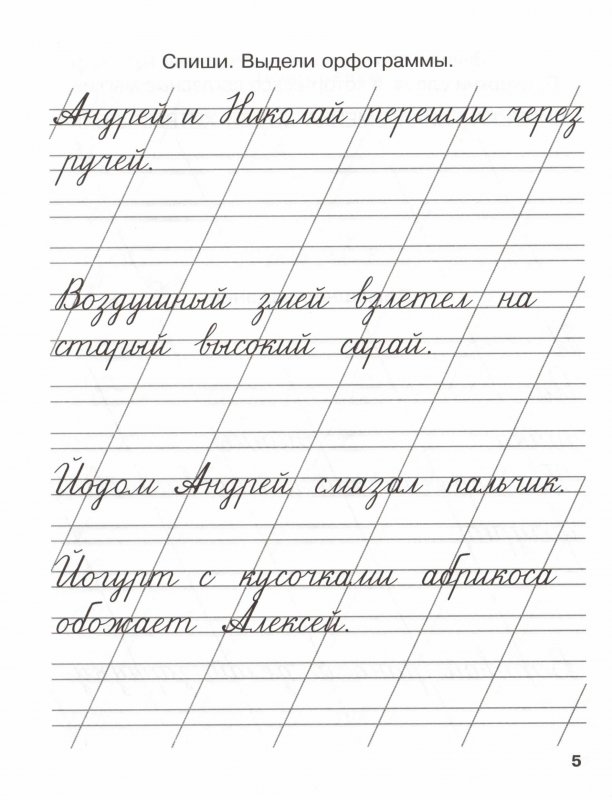 Спиши. Выдели орфограммы.
Андрей и Николай перешли через
ручей.
Воздушный змей взлетел на
старый высокий сарай.
Йодом Андрей смазал пальчик.
Йогурт с кусочками абрикоса
обожает Алексей.
5